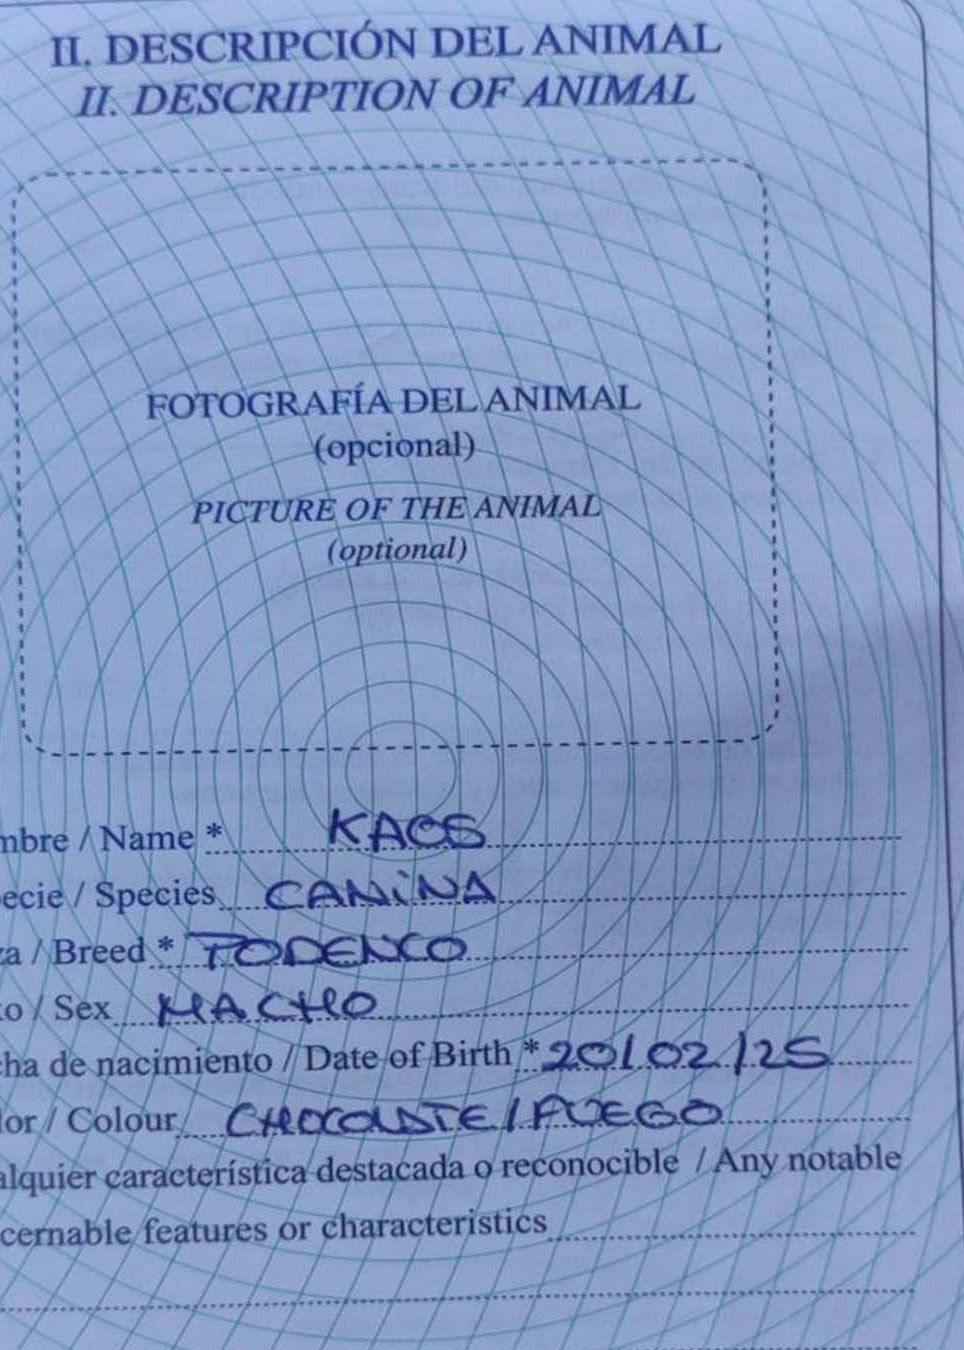 II. DESCRIPCIÓN DEL ANIMAL
II. DESCRIPTION OF ANIMAL
FOTOGRAFÍA DEL ANIMAL
(opcional)
PICTURE OF THE ANIMAL
(optional)
mbre / Name * KAOS
ecie / Species CANiNA
za / Breed * PODENCO
o / Sex MACHO
cha de nacimiento / Date of Birth * 20/02/25
lor / Colour CHOCOLATE/FUEGO
alquier característica destacada o reconocible / Any notable
cernable features or characteristics